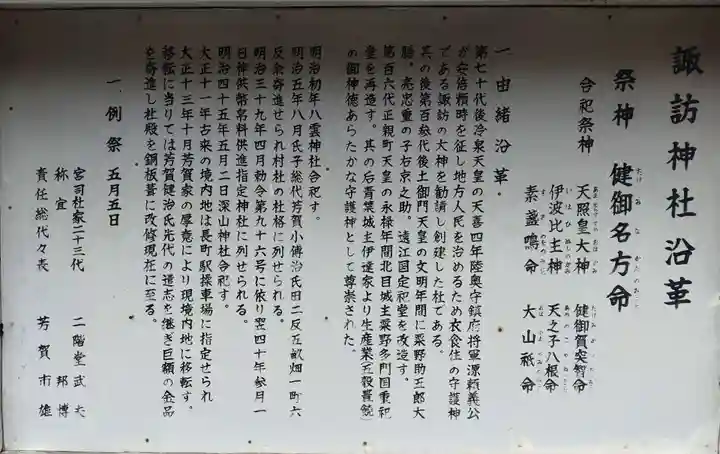 諏訪神社沿革
祭神　健御名方命
たけみなかたのみこと
合祀祭神
天照皇大神　健御賀突智命
伊波比主神　天之子八根命
いはひぬしのかみ　あめのこやねのみこと
素盞鳴命　大山祇命
すさのおのみこと
一　由緒沿革
第七十代後冷泉天皇の天喜四年陸奥守鎮府将軍源頼義公
が安倍頼時を征し地方人民を治めるため衣食住の守護神
である諏訪の大神を勧請し創建した社である。
其の後第百参代後土御門天皇の文明年間に粟野助五郎大
膳、亮忠重の子右京之助。遠江国定祀堂を改造す。
第百六代正親町天皇の永禄年間北目城主粟野多門国重祀
堂を再造す。其の后青葉城主伊達家より生産業(五穀豊饒)
の御神徳あらたかな守護神として尊崇された。
明治初年八雲神社合祀す。
明治五年八月氏子総代芳賀小傳治氏田二反五畝畑一町六
反歩寄進せられ村社の社格に列せられる。
明治三十九年四月勅令第九十六号に依り翌四十年参月一
日神供幣帛料供進指定神社に列せられる。
明治四十五年五月二日深山神社合祀す。
大正十一年古来の境内地は長町駅操車場に指定せられ
大正十三年十月芳賀家の厚意により現境内地に移転す。
移転に当りては芳賀健治氏先代の遺志を継ぎ巨額の金品
を寄進し社殿を銅板葺に改修現在に至る。
一　例祭　五月五日
宮司社家二十三代　二階堂武夫
称宜　邦博
責任総代々表　芳賀市雄